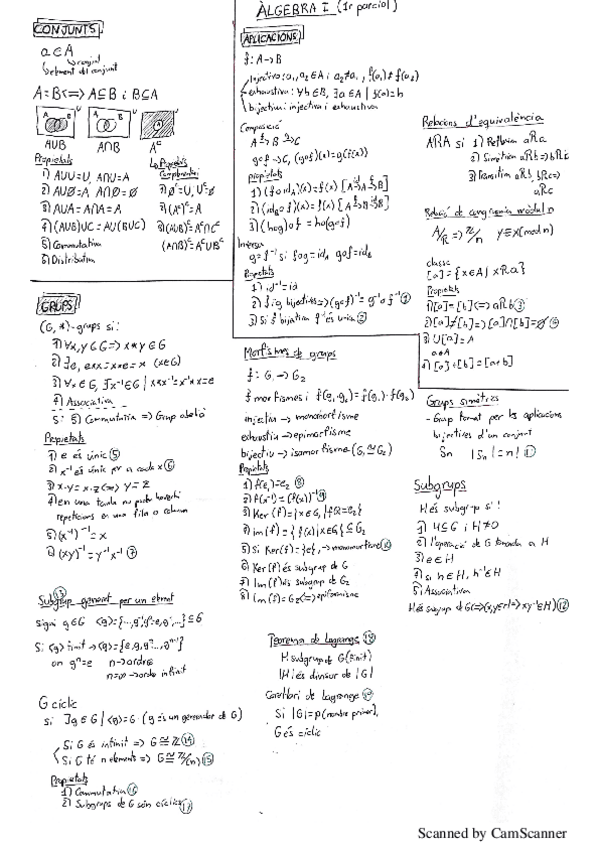 ÀLGEBRA I (1r parcial)
CONJUNTS
a∈A
conjunt
element del conjunt
A=B<=>A⊆B i B⊆A
U
U
A
AUB
A∩B
A^c
Propietats
1) AUU=U, A∩U=A
2) AUØ=A, A∩Ø=Ø
3) AUA=A∩A=A
4) (AUB)UC=AU(BUC)
5) Commutativa
6) Distributiva
Propietats
Complementari
1) Ø^c=U, U^c=Ø
2) (A^c)^c=A
3) (AUB)^c=A^c∩C^c
(A∩B)^c=A^cUB^c
APLICACIONS
f: A→B
Injectiva: a₁, a₂∈A i a₁≠a₂, f(a₁)≠f(a₂)
exhaustiva: ∀b∈B, ∃a∈A | f(a)=b
bijectiva: injectiva i exhaustiva
Composició
gof→C, (gof)(x)=g(f(x))
propietats
1) (foid_A)(x)=f(x)
2) (id_Bof)(x)=f(x)
3) (hog)of = ho(gof)
Inversa
g=f⁻¹ si fog=id gof=id
Propietats
1) id⁻¹=id
2) f i g bijectives=>(gof)⁻¹=
3) Si f bijectiva f⁻¹ és única ②
Relacions d'equivalència
ARA si 1) Reflexiva aRa
2) Simètrica aRb=>bRa
3) Transitiva aRb, bRc=>
aRc
Relació de congruència mòdul n
A/R=>ℤ/n y≡x(mod n)
classe
[a]={x∈A | xRa}
Propietats
1) [a]=[b]<=>aRb ③
2) [a]≠[b]=>[a]∩[b]=Ø ④
3) U[a]=A
a∈A
4) [a]+[b]=[a+b]
GRUPS
(G, *)-grups si:
1) ∀x, y∈G=>x*y∈G
2) ∃e, e*x=x*e=x (x∈G)
3) ∀x∈G, ∃x⁻¹∈G | x*x⁻¹=x⁻¹*x=e
4) Associativa
Si 5) Commutativa => Grup abelià
Propietats
1) e és únic ⑤
2) x⁻¹ és únic per a cada x ⑥
3) x·y=x·z<=>y=z
4) en una taula no pot haver-hi
repeticions en una fila o columna
5) (x⁻¹)⁻¹=x
6) (xy)⁻¹=y⁻¹x⁻¹ ⑦
Morfismes de grups
f: G₁→G₂
f morfismes i f(g₁·g₂)=f(g₁)·f(g₂)
injectiu→monomorfisme
exhaustiu→epimorfisme
bijectiu→isomorfisme (G₁≅G₂)
Propietats
1) f(e₁)=e₂ ⑧
2) f(x⁻¹)=(f(x))⁻¹ ⑨
3) Ker(f)={x∈G₁ | f(x)=e₂}
4) im(f)={f(x) | x∈G₁}⊆G₂
5) Si Ker(f)={e₁}→monomorfisme ⑩
6) Ker(f) és subgrup de G
7) Im(f) és subgrup de G₂
8) Im(f)=G₂<=>epimorfisme
Grups simètrics
-Grup format per les aplicacions
bijectives d'un conjunt
Sn |Sn|=n!
Subgrups
H és subgrup si:
1) H⊆G i H≠Ø
2) l'operació de G tancada a H
3) e∈H
4) si h∈H, h⁻¹∈H
5) Associativa
H és subgrup de G<=>(x,y∈H=>xy⁻¹∈H) ⑫
⑬
Subgrup generat per un element
sigui g∈G <g>={..., g⁻¹, g⁰=e, g¹, ...}⊆G
Si <g> finit→<g>={e, g, g², ..., gⁿ⁻¹}
on gⁿ=e n→ordre
n=∞→ordre infinit
G cíclic
si ∃g∈G | <g>=G (g és un generador de G)
Si G és infinit=>G≅ℤ ⑭
Si G té n elements=>G≅ℤ/(n) ⑮
Propietats
1) Commutativa ⑯
2) Subgrups de G són cíclics ⑰
Teorema de Lagrange ⑱
H subgrup de G (finit)
|H| és divisor de |G|
Corol·lari de Lagrange ⑲
Si |G|=p (nombre primer),
G és cíclic
Scanned by CamScanner